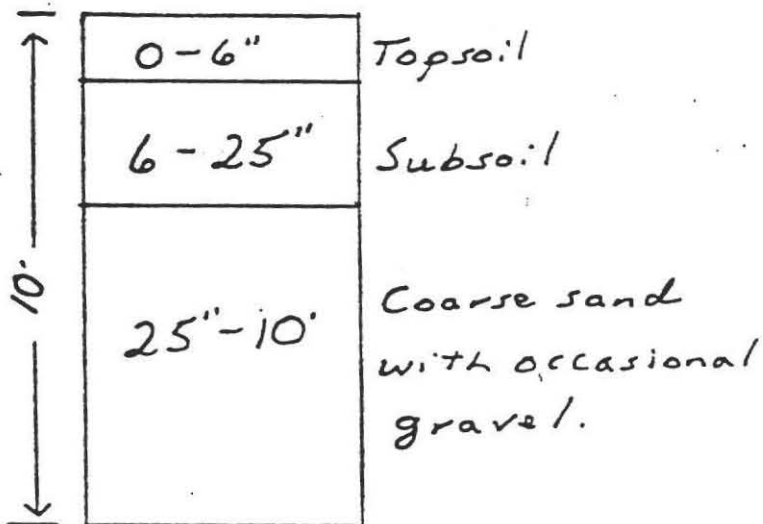 0-6" Topsoil
6-25" Subsoil
10'
25"-10' Coarse sand
with occasional
gravel.